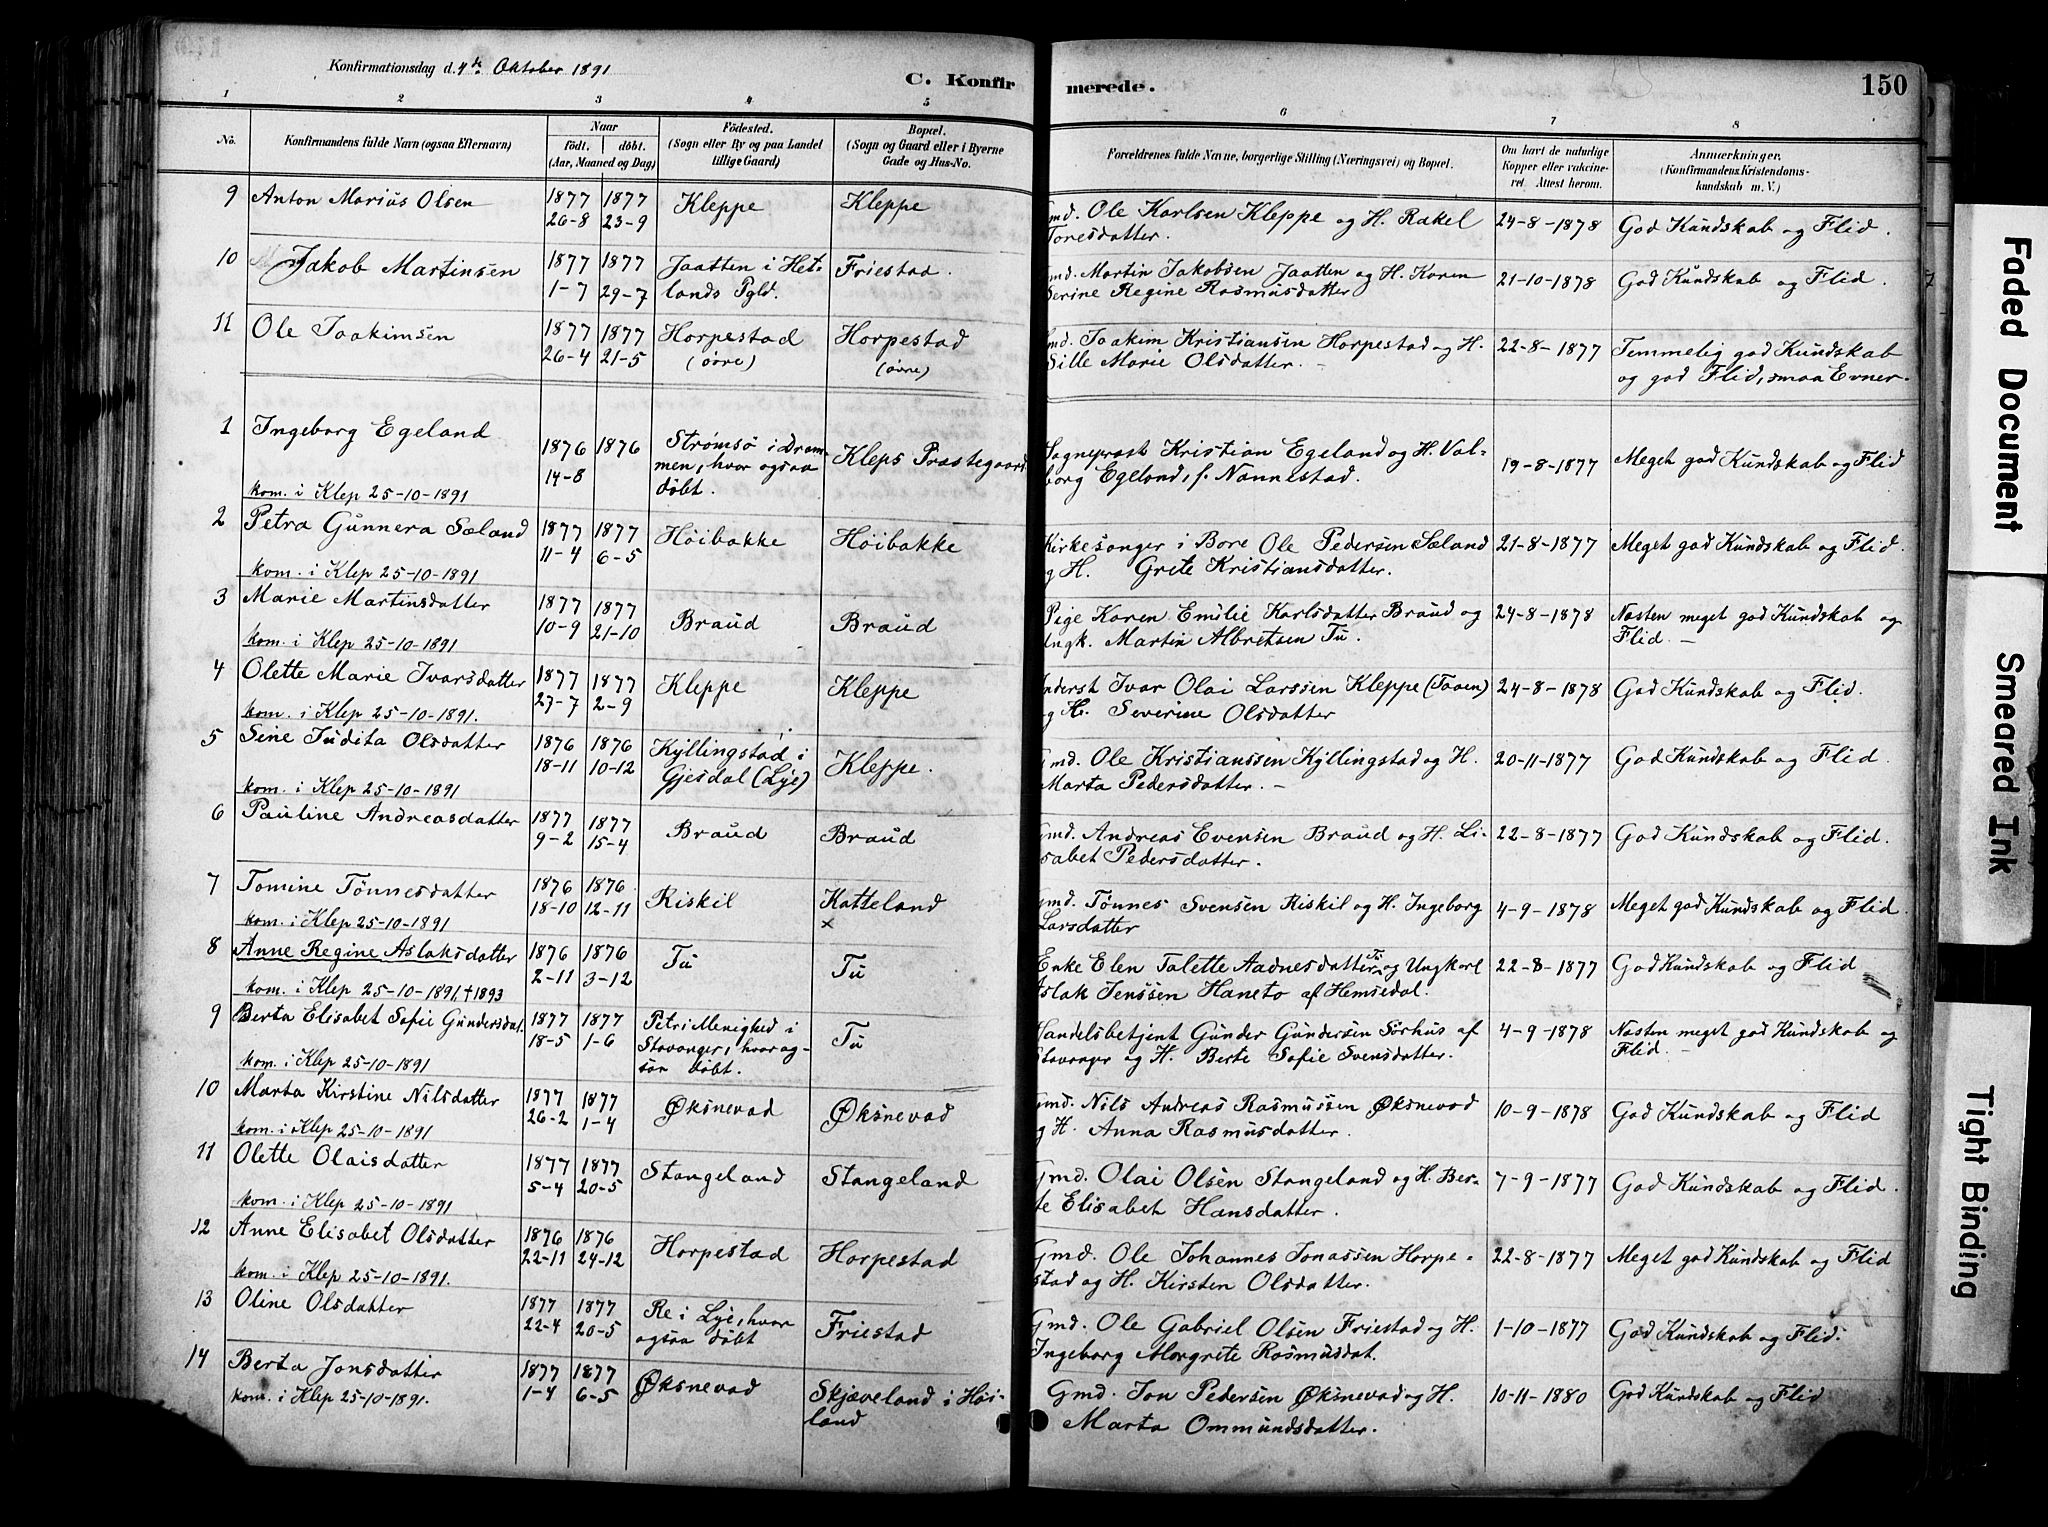 Konfirmationsdag d. 4de Oktober 1891
C. Konfirmerede.
150
1 2 3 4 5 6 7 8
No.
Konfirmandens fulde Navn (ogsaa Efternavn)
Naar
födt. döbt.
(Aar, Maaned og Dag)
Födested.
(Sogn eller By og paa Landet
tillige Gaard)
Bopæl.
(Sogn og Gaard eller i Byerne
Gade og Hus-No.
Forældrenes fulde Navne, borgerlige Stilling (Næringsvei) og Bopæl.
Om havt de naturlige
Kopper eller vakcine-
ret. Attest herom.
Anmærkninger.
(Konfirmandens Kristendoms-
kundskab m. V.)
9 Anton Marius Olsen 1877 26-8 1877 23-9 Kleppe Kleppe Gmd. Ole Karlsen Kleppe og H. Rakel
Toresdatter. 24-8-1878 God Kundskab og Flid.
10 Jakob Martinsen 1877 1-7 1877 29-7 Jaatten i Het-
lands Pgld. Friestad. Gmd. Martin Jakobsen Jaatten og H. Karen
Serine Regine Rasmusdatter 21-10-1878 God Kundskab og Flid.
11 Ole Joakimsen 1877 26-4 1877 21-5 Horpestad
(øvre) Horpestad
(øvre) Gmd. Joakim Kristiansen Horpestad og H.
Sille Marie Olsdatter. - 22-8-1877 Temmelig god Kundskab
og god Flid, smaa Evner.
1 Ingeborg Egeland
kom. i Klep 25-10-1891 1876 14-8 1876 Strømsö i Dram-
men, hvor ogsaa
döbt. Kleps Præstegaard Sogneprest Kristian Egeland og H. Val-
borg Egeland, f. Nannestad. 19-8-1877 Meget god Kundskab og Flid
2 Petra Gunnera Sæland
kom. i Klep 25-10-1891 1877 11-4 1877 6-5 Höibakke Höibakke Kirkesanger i Bore Ole Pedersen Sæland
og H. Grete Kristiansdatter. 21-8-1877 Meget god Kundskab og Flid.
3 Marie Martinsdatter
kom. i Klep 25-10-1891 1877 10-9 1877 21-10 Braud Braud Pige Karen Emilie Karlsdatter Braud og
Ungk. Martin Albretsen Tu. 24-8-1878 Næsten meget god Kundskab og
Flid. -
4 Olette Marie Ivarsdatter
kom. i Klep 25-10-1891. 1877 27-7 1877 2-9 Kleppe Kleppe Inderst Ivar Olai Larssen Kleppe (Taaen)
og H. Severine Olsdatter 24-8-1878 God Kundskab og Flid.
5 Sine Judita Olsdatter
kom. i Klep 25-10-1891 1876 18-11 1876 10-12 Kyllingstad i
Gjesdal (Lye) Kleppe. Gmd. Ole Kristianssen Kyllingstad og H.
Marta Pedersdatter. - 20-11-1877 God Kundskab og Flid.
6 Pauline Andreasdatter 1877 9-2 1877 15-4 Braud Braud Gmd. Andreas Evensen Braud og H. Li-
sabet Pedersdatter. 22-8-1877 God Kundskab og Flid.
7 Tomine Tönnesdatter
kom. i Klep 25-10-1891 1876 18-10 1876 12-11 Riskil Katteland
x Gmd. Tönnes Svensen Riskil og H. Ingeborg
Larsdatter 4-9-1878 Meget god Kundskab og Flid.
8 Anne Regine Aslaksdatter
kom. i Klep 25-10-1891, † 1893 1876 2-11 1876 3-12 Tu Tu Enke Elen Talette Aadnesdatter Tu og Ungkarl
Aslak Jenssen Haneto af Hemsedal. 22-8-1877 God Kundskab og Flid
9 Berta Elisabet Sofie Gundersdat.
kom. i Klep 25-10-1891 1877 18-5 1877 1-6 Petri Menighed i
Stavanger, hvor og-
saa döbt. Tu Handelsbetjent Gunder Gundersen Sörhus af
Stavanger og H. Berte Sofie Svensdatter. 4-9-1878 Næsten meget god Kundskab og
Flid. -
10 Marta Kirstine Nilsdatter
kom. i Klep 25-10-1891 1877 26-2 1877 1-4 Øksnevad Øksnevad Gmd. Nils Andreas Rasmussen Øksnevad
og H. Anna Rasmusdatter. 10-9-1878 God Kundskab og Flid
11 Olette Olaisdatter
kom. i Klep 25-10-1891 1877 5-4 1877 20-5 Stangeland Stangeland Gmd. Olai Olsen Stangeland og H. Ber-
te Elisabet Hansdatter. 7-9-1877 God Kundskab og Flid.
12 Anne Elisabet Olsdatter
kom. i Klep 25-10-1891. 1876 22-11 1876 24-12 Horpestad Horpestad Gmd. Ole Johannes Jonassen Horpe-
stad og H. Kirsten Olsdatter. 22-8-1877 Meget god Kundskab og Flid
13 Oline Olsdatter 1877 22-4 1877 20-5 Re i Lye, hvor
ogsaa döbt Friestad Gmd. Ole Gabriel Olsen Friestad og H.
Ingeborg Margrete Rasmusdat. 1-10-1877 God Kundskab og Flid.
14 Berta Jonsdatter
kom. i Klep 25-10-1891. 1877 1-4 1877 6-5 Øksnevad Skjæveland i Höi-
land Gmd. Jon Pedersen Øksnevad og H.
Marta Ommundsdatter. 10-11-1880 God Kundskab og Flid
Faded Document
Smeared Ink
Tight Binding